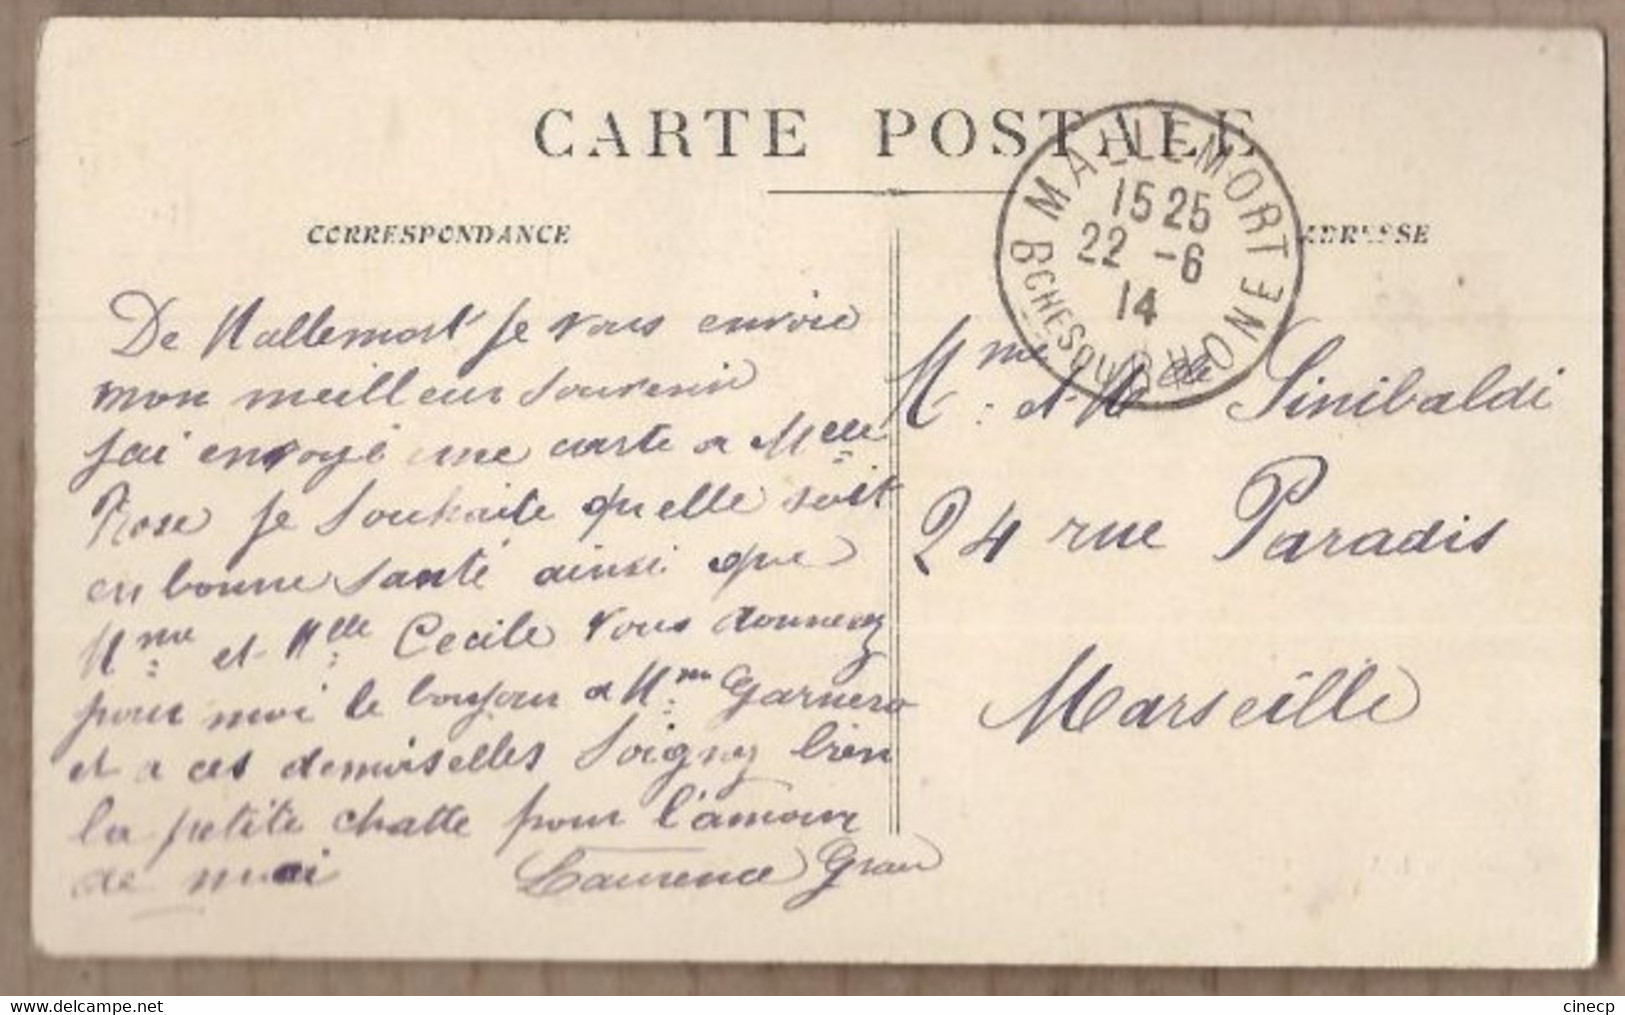 CARTE POSTALE
CORRESPONDANCE
ADRESSE
MALLEMORT
15 25
22 -6
14
BCHES DU RHONE
De Mallemort je vous envoie
mon meilleur souvenir
jai envoyé une carte a Melle
Rose je souhaite quelle soit
en bonne santé ainsi que
Mme et Mlle Cecile vous donnerez
pour moi le boujour a Mme Garnero
et a ces demoiselles Soignez bien
la petite chatte pour l'amour
de moi Laurence Grau
Mme et Melle Sinibaldi
24 rue Paradis
Marseille
cinecp